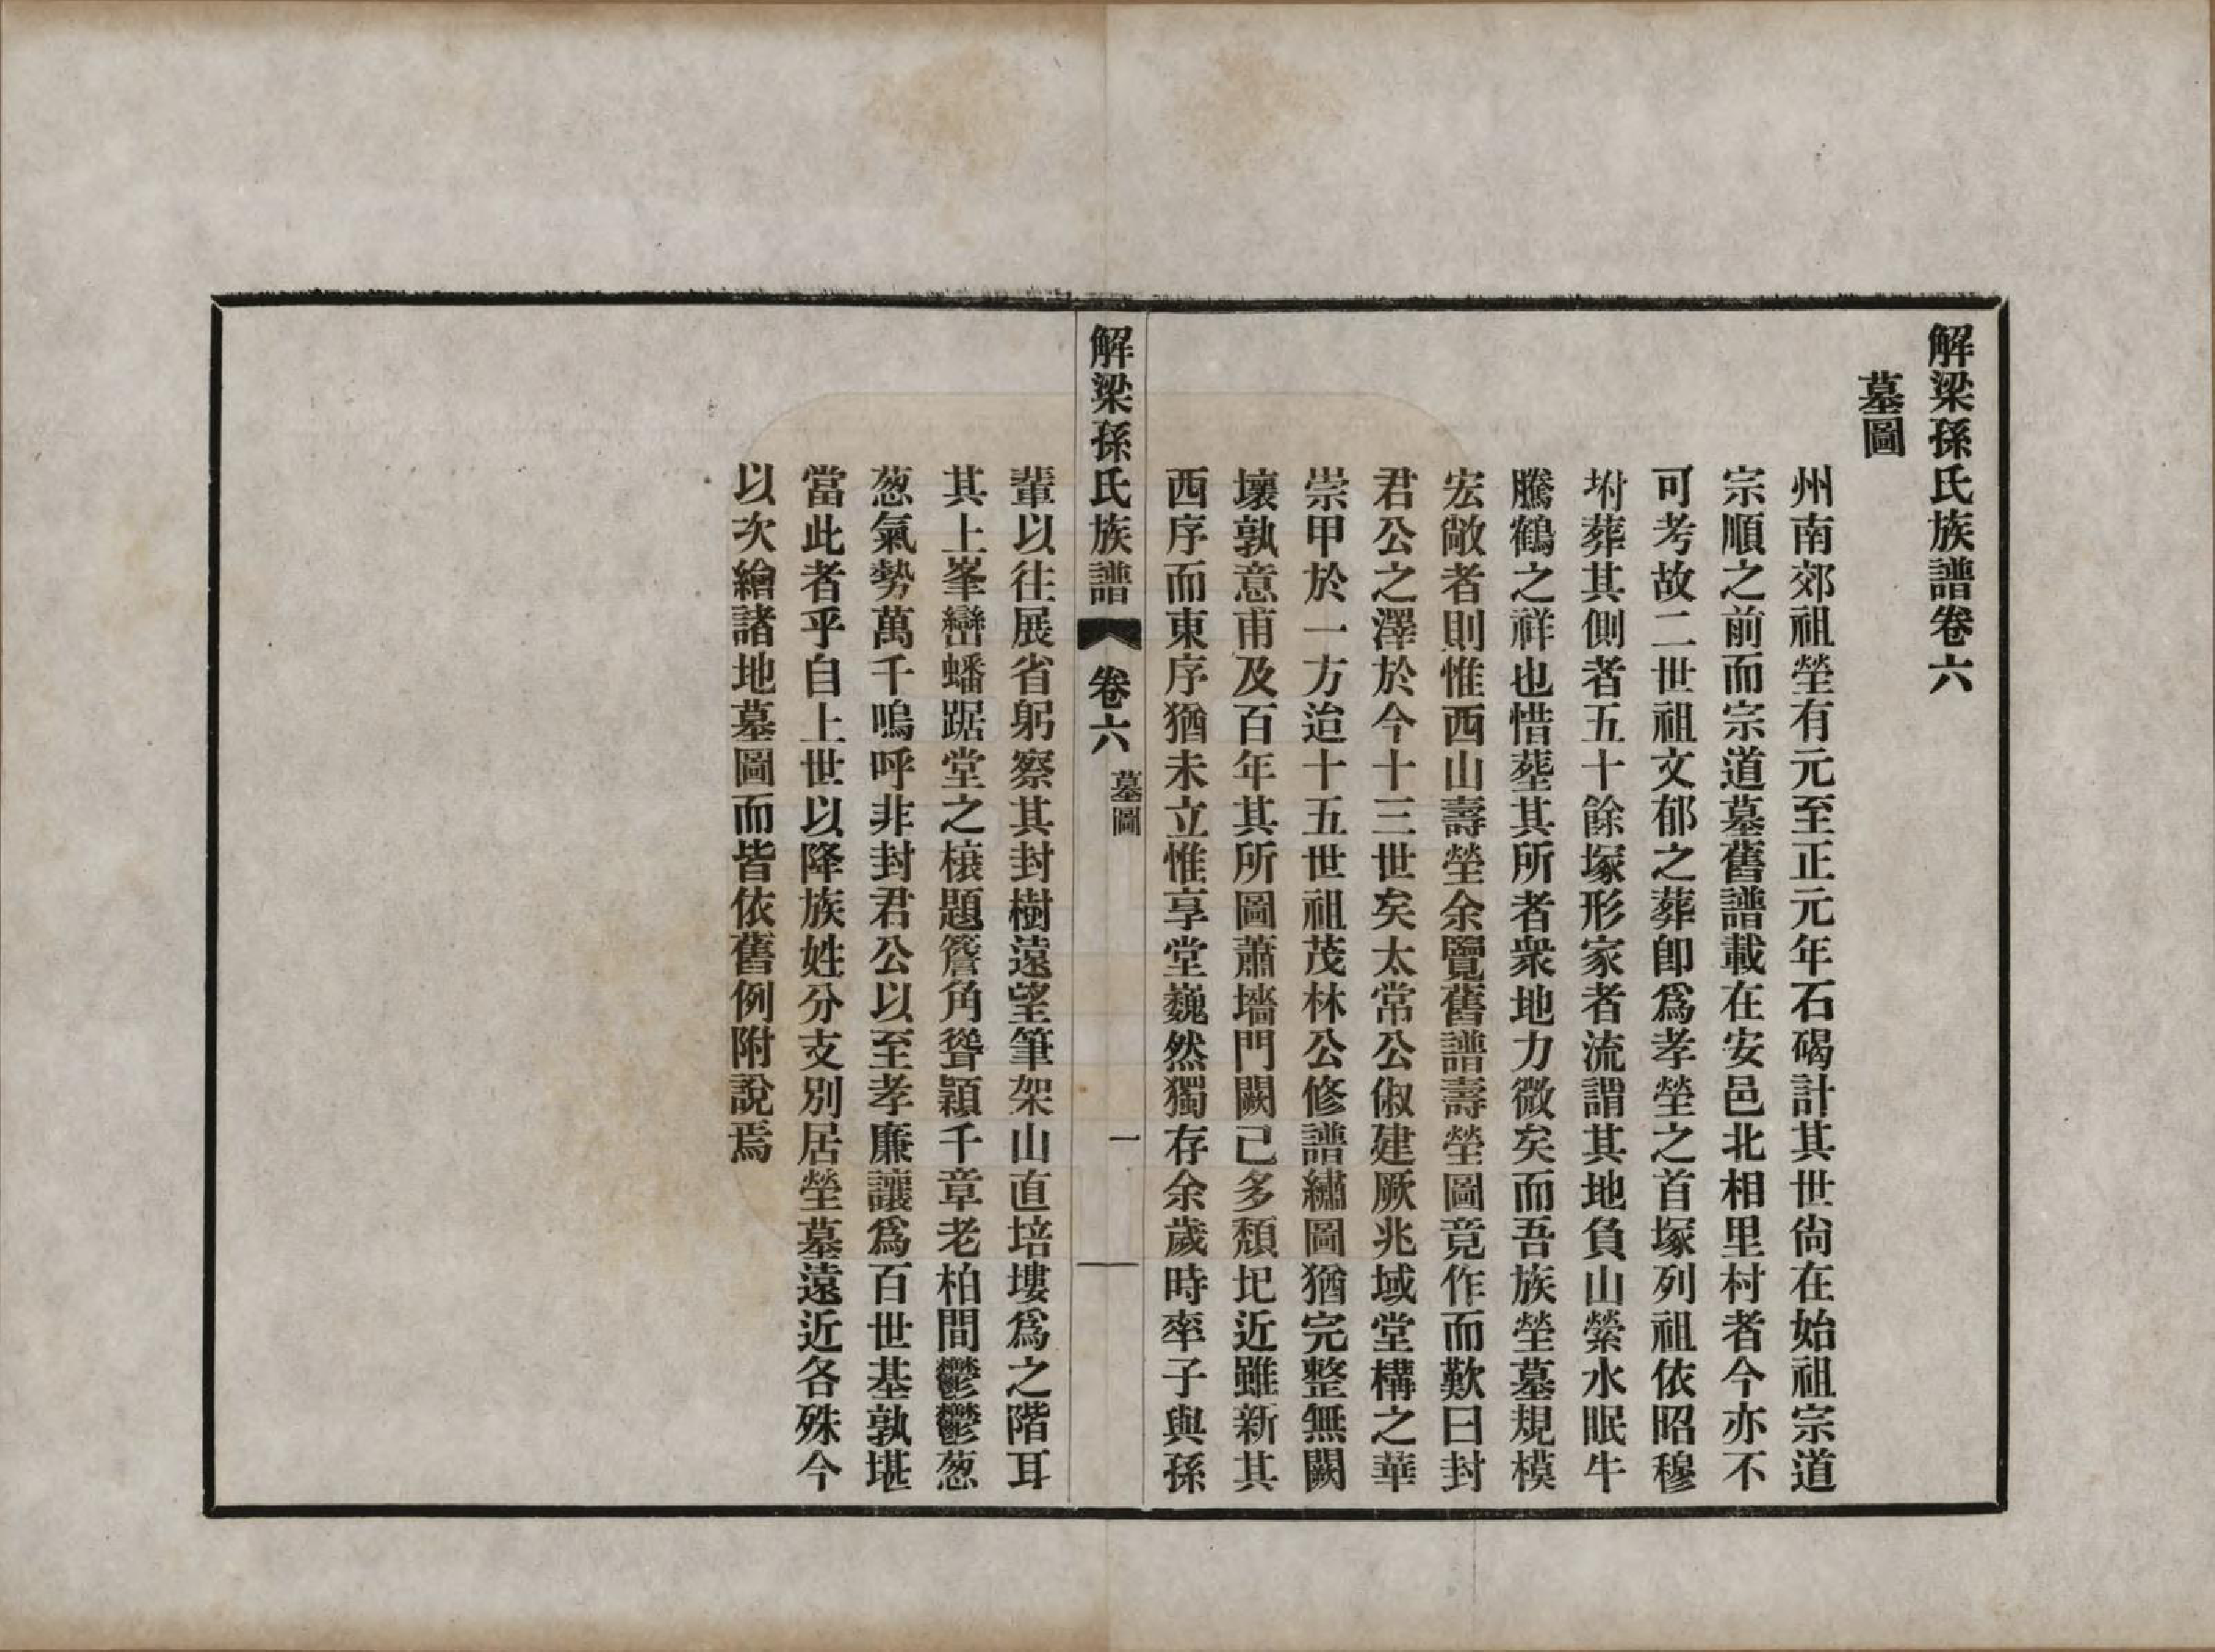 解梁孫氏族譜卷六
墓圖
州南郊祖塋有元至正元年石碣計其世尙在始祖宗道
宗順之前而宗道墓舊譜載在安邑北相里村者今亦不
可考故二世祖文郁之葬卽爲孝塋之首塚列祖依昭穆
坿葬其側者五十餘塚形家者流謂其地負山縈水眠牛
騰鶴之祥也惜塟其所者衆地力微矣而吾族塋墓規模
宏敞者則惟西山壽塋余覽舊譜壽塋圖竟作而歎曰封
君公之澤於今十三世矣太常公俶建厥兆域堂構之華
崇甲於一方迨十五世祖茂林公修譜繡圖猶完整無闕
壞孰意甫及百年其所圖蕭墻門闕己多頹圮近雖新其
西序而東序猶未立惟享堂巍然獨存余歲時率子與孫
解梁孫氏族譜
卷六
墓圖
一
輩以往展省躬察其封樹遠望筆架山直培塿爲之階耳
其上峯巒蟠踞堂之榱題簷角聳顈千章老柏間鬱鬱葱
葱氣勢萬千嗚呼非封君公以至孝廉讓爲百世基孰堪
當此者乎自上世以降族姓分支別居塋墓遠近各殊今
以次繪諸地墓圖而皆依舊例附說焉